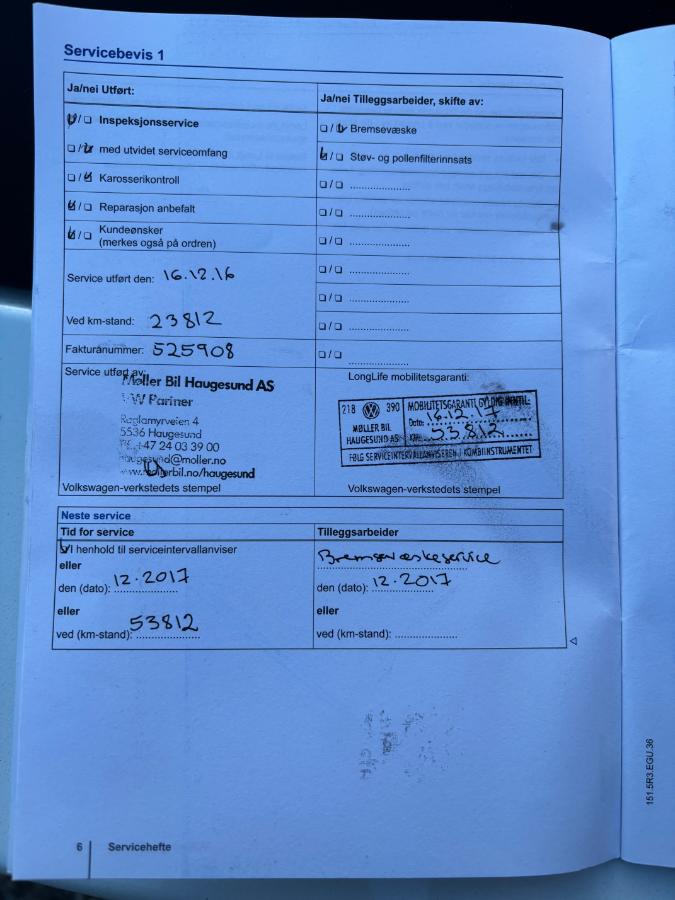 Servicebevis 1
Ja/nei Utført:
☑/☐ Inspeksjonsservice
☐/☑ med utvidet serviceomfang
☐/☑ Karosserikontroll
☑/☐ Reparasjon anbefalt
☑/☐ Kundeønsker
(merkes også på ordren)
Service utført den: 16.12.16
Ved km-stand: 23812
Fakturanummer: 525908
Service utført av:
Møller Bil Haugesund AS
VW Partner
Raglamyrveien 4
5536 Haugesund
Tlf. +47 24 03 39 00
haugesund@moller.no
www.mollerbil.no/haugesund
Volkswagen-verkstedets stempel
Ja/nei Tilleggsarbeider, skifte av:
☐/☑ Bremsevæske
☑/☐ Støv- og pollenfilterinnsats
☐/☐ ....................
☐/☐ ....................
☐/☐ ....................
☐/☐ ....................
☐/☐ ....................
☐/☐ ....................
☐/☐ ....................
LongLife mobilitetsgaranti:
218 390 MOBILITETSGARANTI GYLDIG INNTIL:
MØLLER BIL Dato: 16.12.17
HAUGESUND AS KM: 53812
FØLG SERVICEINTERVALLANVISEREN I KOMBIINSTRUMENTET
Volkswagen-verkstedets stempel
Neste service
Tid for service
☑ I henhold til serviceintervallanviser
eller
den (dato): 12.2017
eller
ved (km-stand): 53812
Tilleggsarbeider
Bremsevæskeservice
den (dato): 12.2017
eller
ved (km-stand): ....................
6 Servicehefte
151.5R3.EGU.36